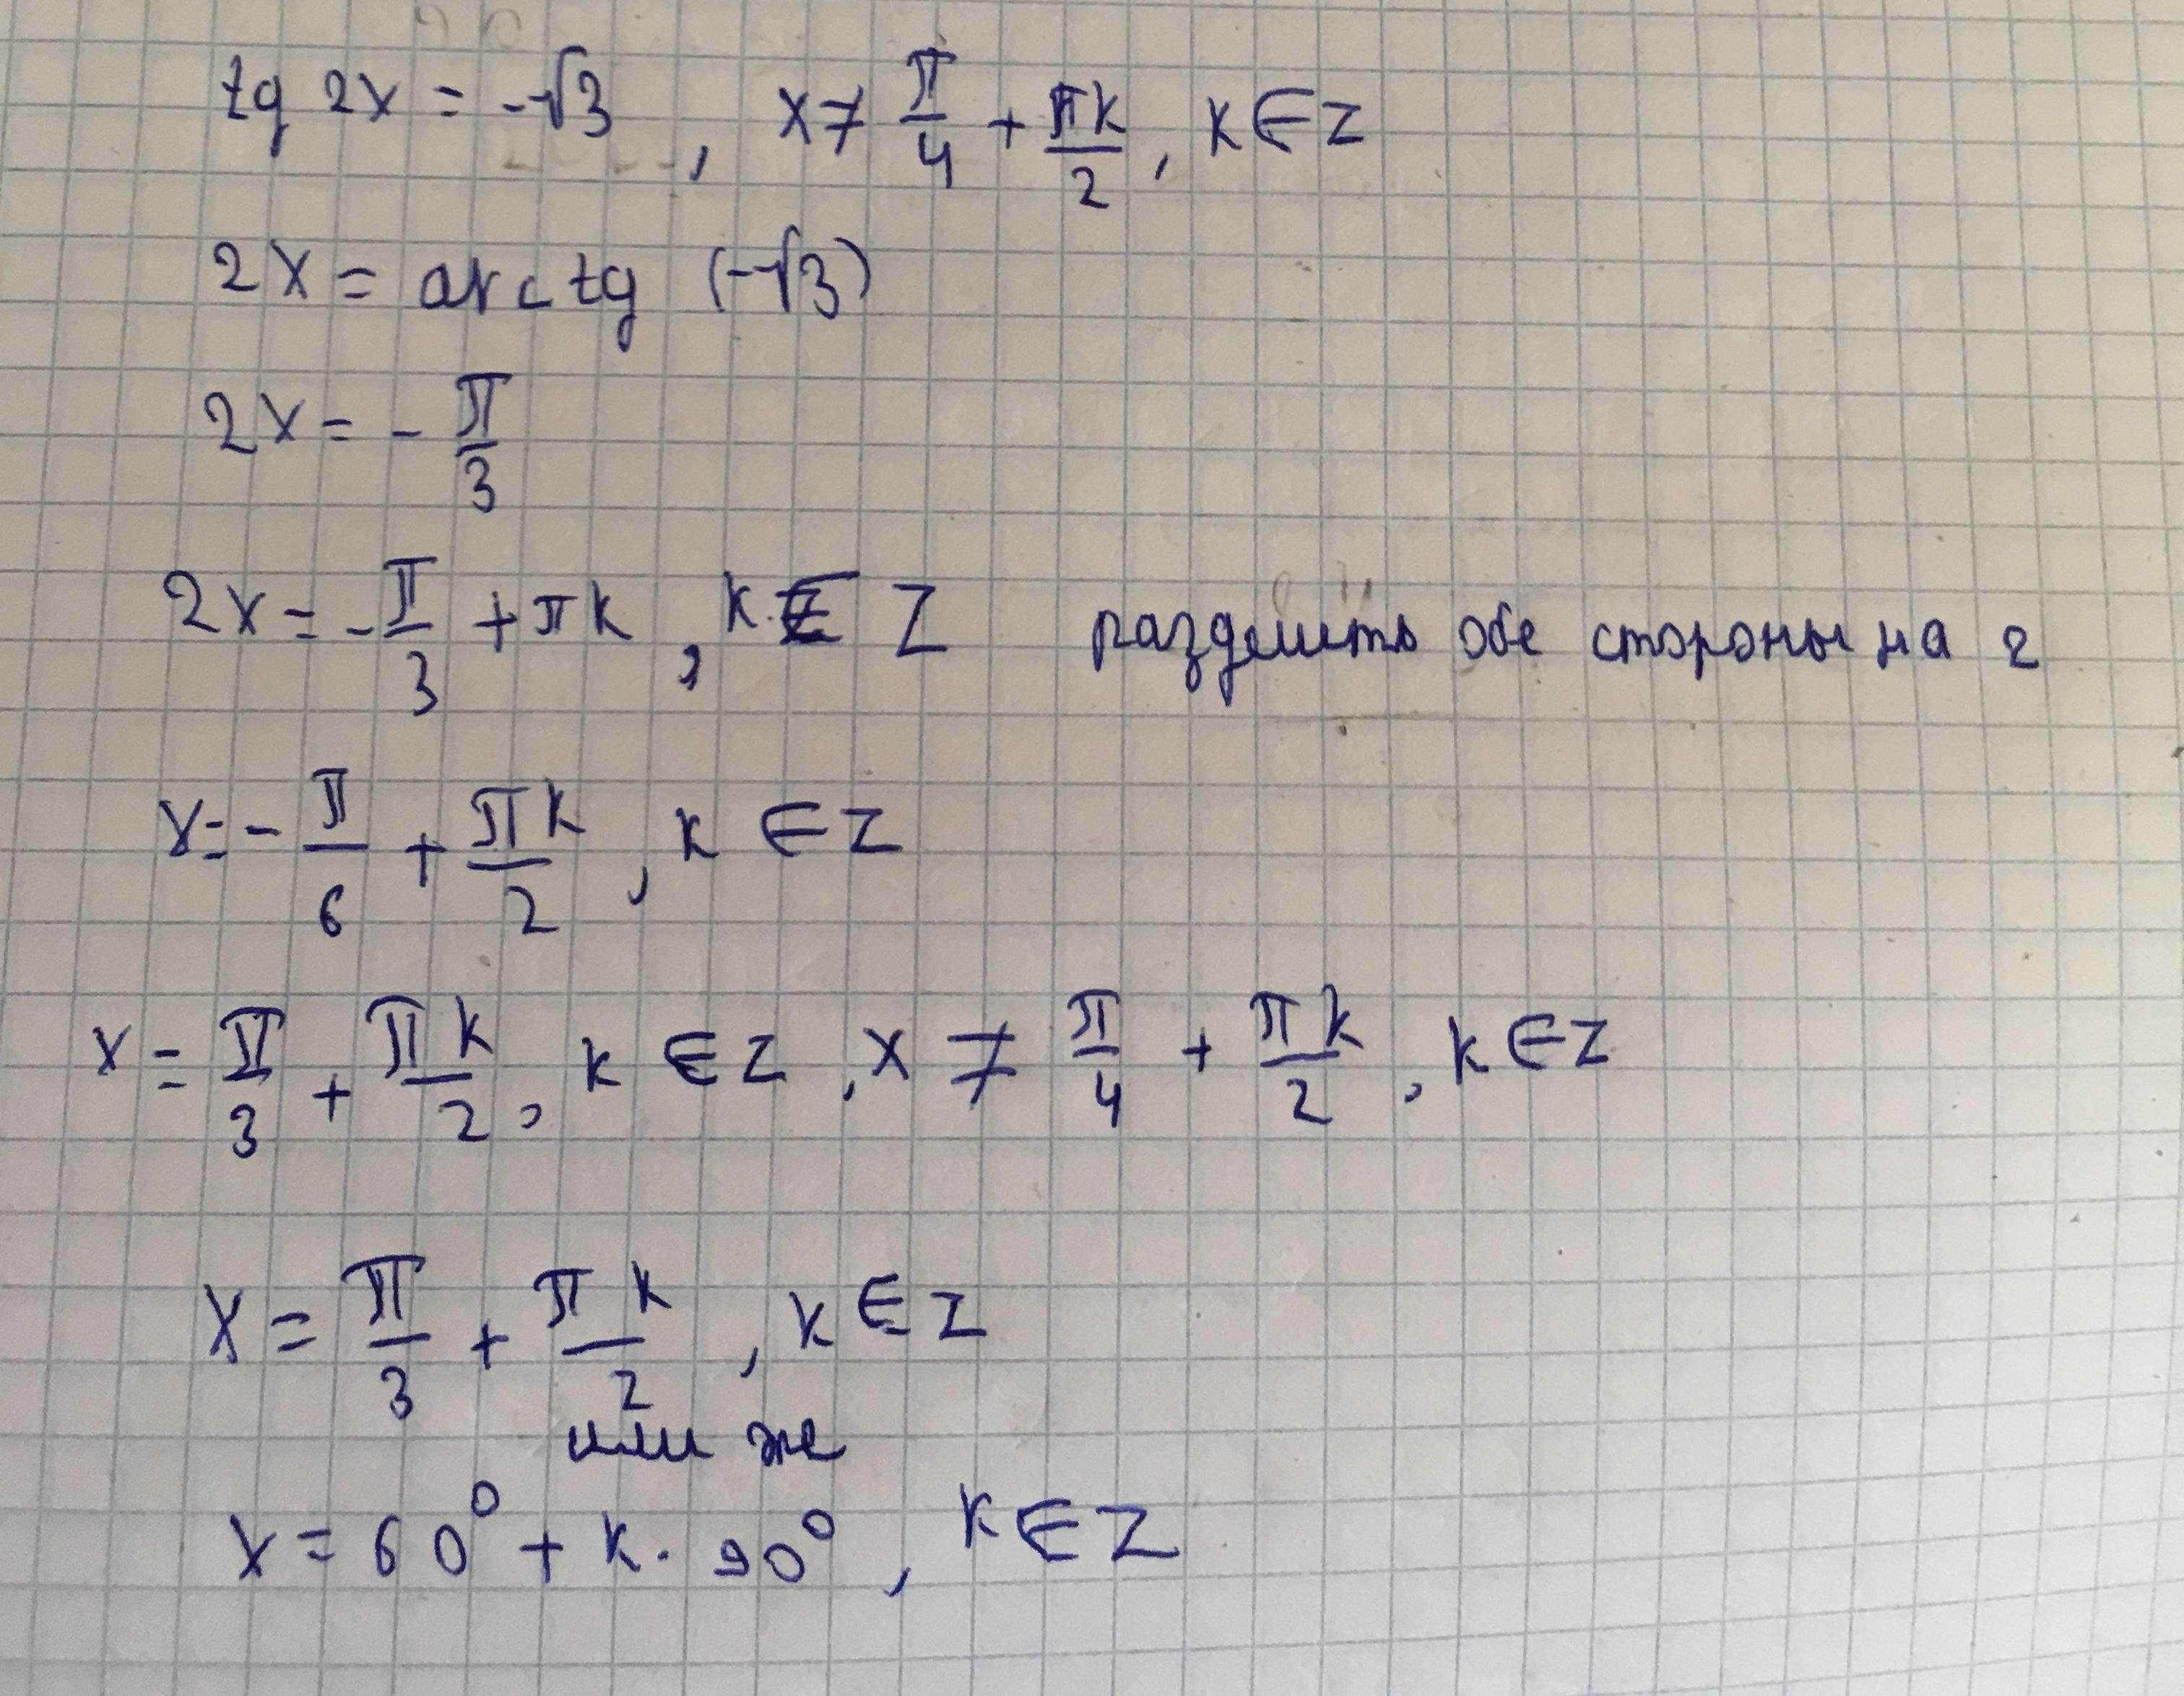 tg 2x = -√3 , x ≠ π/4 + πk/2, k ∈ Z
2x = arctg (-√3)
2x = - π/3
2x = - π/3 + πk , k ∈ Z разделить обе стороны на 2
x = - π/6 + πk/2 , k ∈ Z
x = π/3 + πk/2, k ∈ Z , x ≠ π/4 + πk/2 , k ∈ Z
x = π/3 + πk/2 , k ∈ Z
или же
x = 60° + k · 90° , k ∈ Z